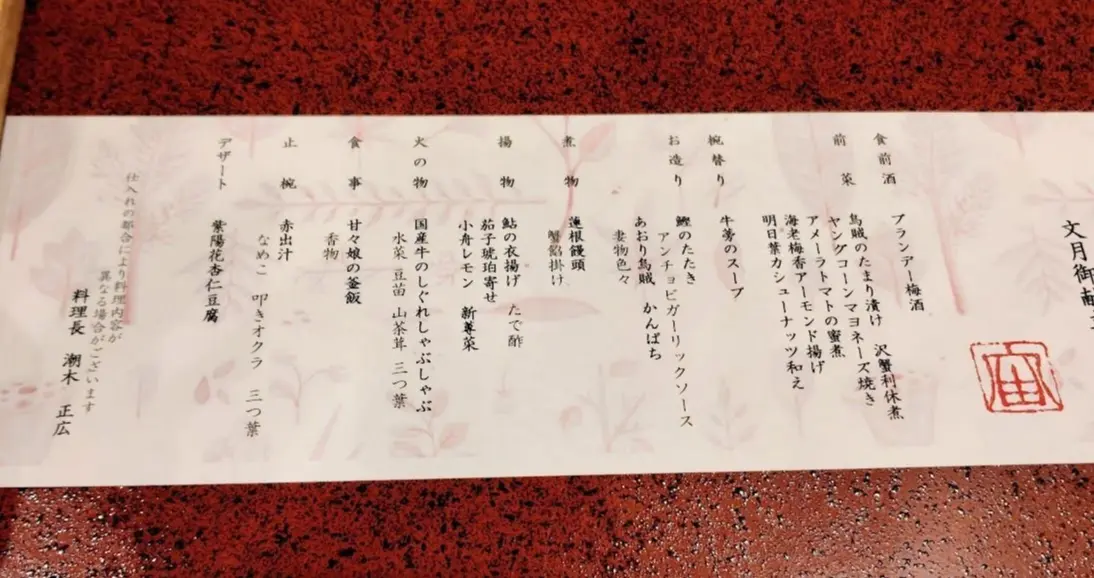 文月御献
食前酒
ブランデー梅酒
前菜
烏賊のたまり漬け　沢蟹利休煮
ヤングコーンマヨネーズ焼き
アメーラトマトの蜜煮
海老梅香アーモンド揚げ
明日葉カシューナッツ和え
椀替り
牛蒡のスープ
お造り
鰹のたたき
アンチョビガーリックソース
あおり烏賊　かんぱち
妻物色々
煮物
蓮根饅頭
蟹餡掛け
揚物
鮎の衣揚げ　たで酢
茄子琥珀寄せ
小舟レモン　新蓴菜
火の物
国産牛のしぐれしゃぶしゃぶ
水菜 豆苗 山茶茸 三つ葉
食事
甘々娘の釜飯
香物
止椀
赤出汁
なめこ　叩きオクラ　三つ葉
デザート
紫陽花杏仁豆腐
仕入れの都合により料理内容が
異なる場合がございます
料理長　潮木　正広